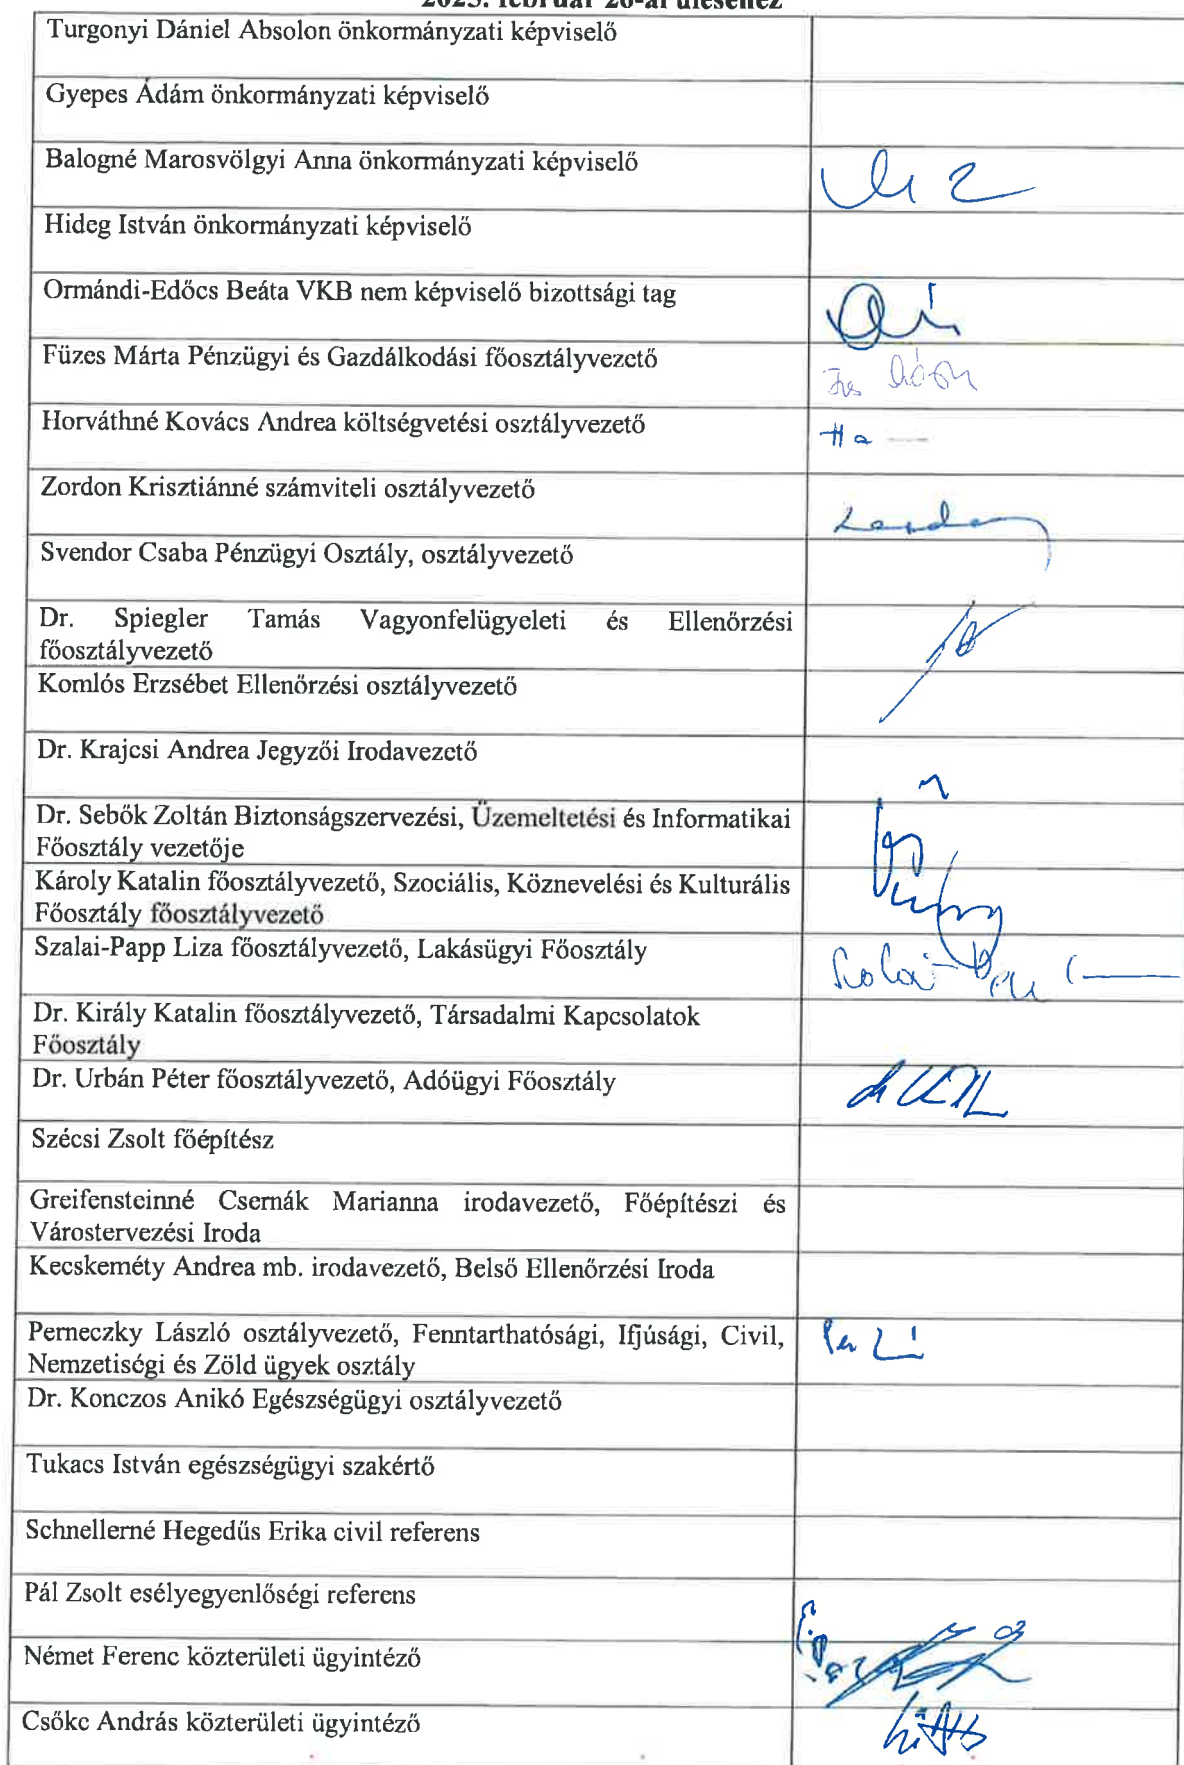 2025. február 26-ai üléséhez
Turgonyi Dániel Absolon önkormányzati képviselő
Gyepes Ádám önkormányzati képviselő
Balogné Marosvölgyi Anna önkormányzati képviselő
Hideg István önkormányzati képviselő
Ormándi-Edőcs Beáta VKB nem képviselő bizottsági tag
Füzes Márta Pénzügyi és Gazdálkodási főosztályvezető
Horváthné Kovács Andrea költségvetési osztályvezető
Zordon Krisztiánné számviteli osztályvezető
Svendor Csaba Pénzügyi Osztály, osztályvezető
Dr. Spiegler Tamás Vagyonfelügyeleti és Ellenőrzési
főosztályvezető
Komlós Erzsébet Ellenőrzési osztályvezető
Dr. Krajcsi Andrea Jegyzői Irodavezető
Dr. Sebők Zoltán Biztonságszervezési, Üzemeltetési és Informatikai
Főosztály vezetője
Károly Katalin főosztályvezető, Szociális, Köznevelési és Kulturális
Főosztály főosztályvezető
Szalai-Papp Liza főosztályvezető, Lakásügyi Főosztály
Dr. Király Katalin főosztályvezető, Társadalmi Kapcsolatok
Főosztály
Dr. Urbán Péter főosztályvezető, Adóügyi Főosztály
Szécsi Zsolt főépítész
Greifensteinné Csernák Marianna irodavezető, Főépítészi és
Várostervezési Iroda
Kecskeméty Andrea mb. irodavezető, Belső Ellenőrzési Iroda
Perneczky László osztályvezető, Fenntarthatósági, Ifjúsági, Civil,
Nemzetiségi és Zöld ügyek osztály
Dr. Konczos Anikó Egészségügyi osztályvezető
Tukacs István egészségügyi szakértő
Schnellerné Hegedűs Erika civil referens
Pál Zsolt esélyegyenlőségi referens
Német Ferenc közterületi ügyintéző
Csőke András közterületi ügyintéző